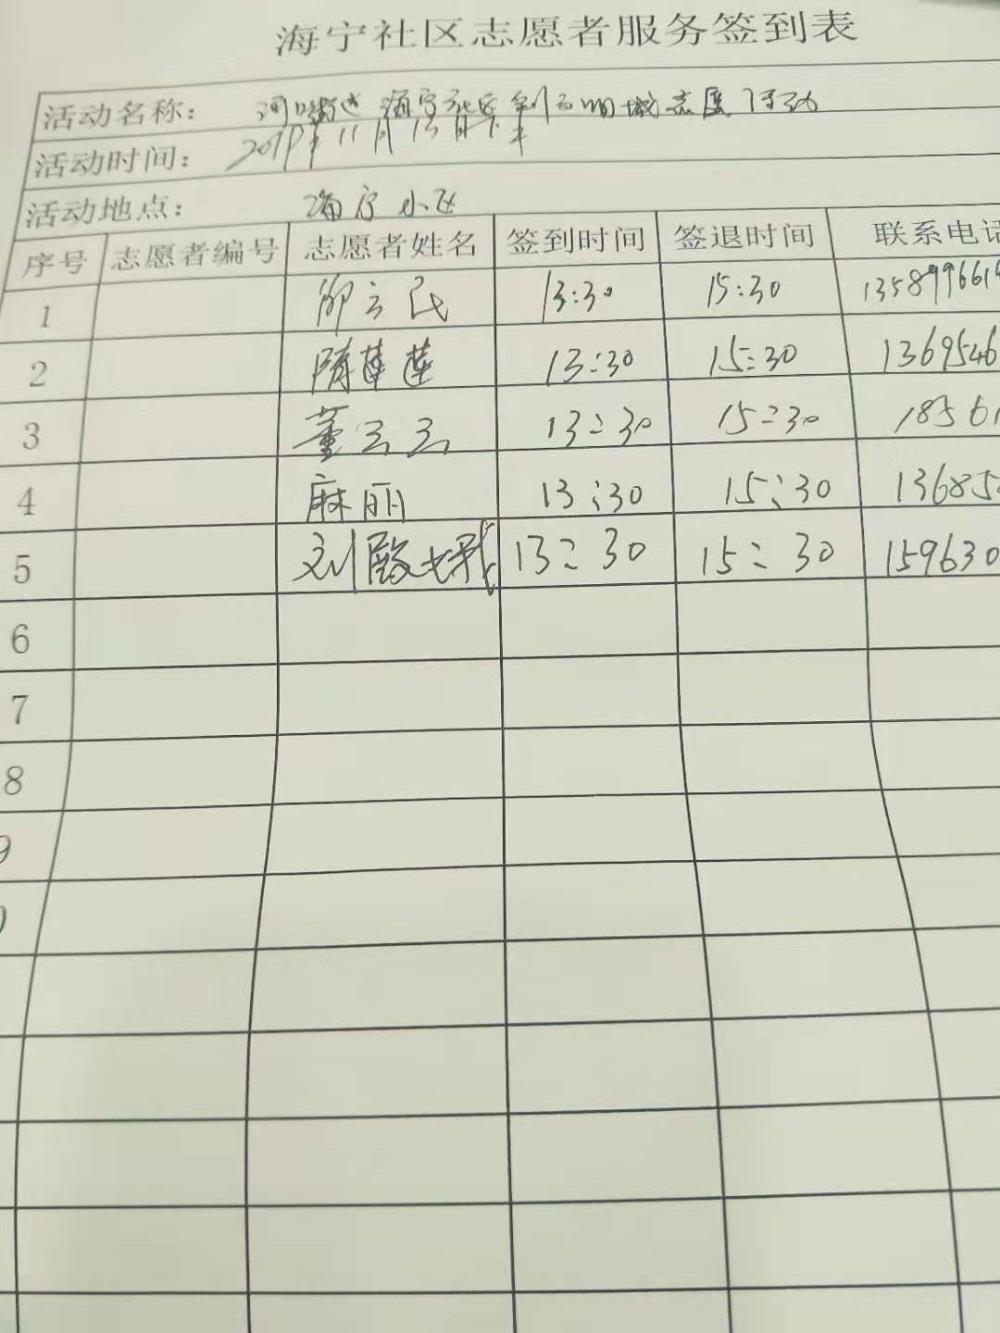 海宁社区志愿者服务签到表
活动名称： 河口街道海宁社区创文明城志愿活动
活动时间： 2019年11月13日下午
活动地点： 海宁小区
序号 志愿者编号 志愿者姓名 签到时间 签退时间 联系电话
1 邵立民 13:30 15:30 1358996619
2 隋莲莲 13:30 15:30 1369546
3 董云云 13:30 15:30 18561
4 麻丽 13:30 15:30 13685
5 刘 13:30 15:30 159630
6
7
8
9